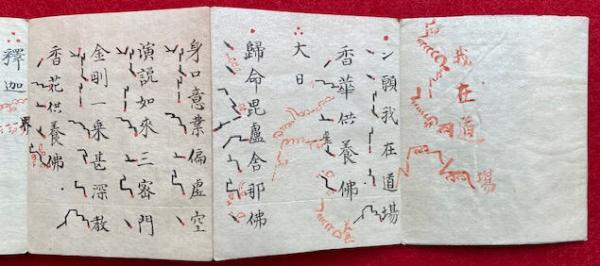 我在道場
ン願我在道場
香華供養佛
大日
歸命毘盧舍那佛
身口意業偏虛空
演說如來三密門
金剛一乗甚深教
香花供養佛
界
釋迦